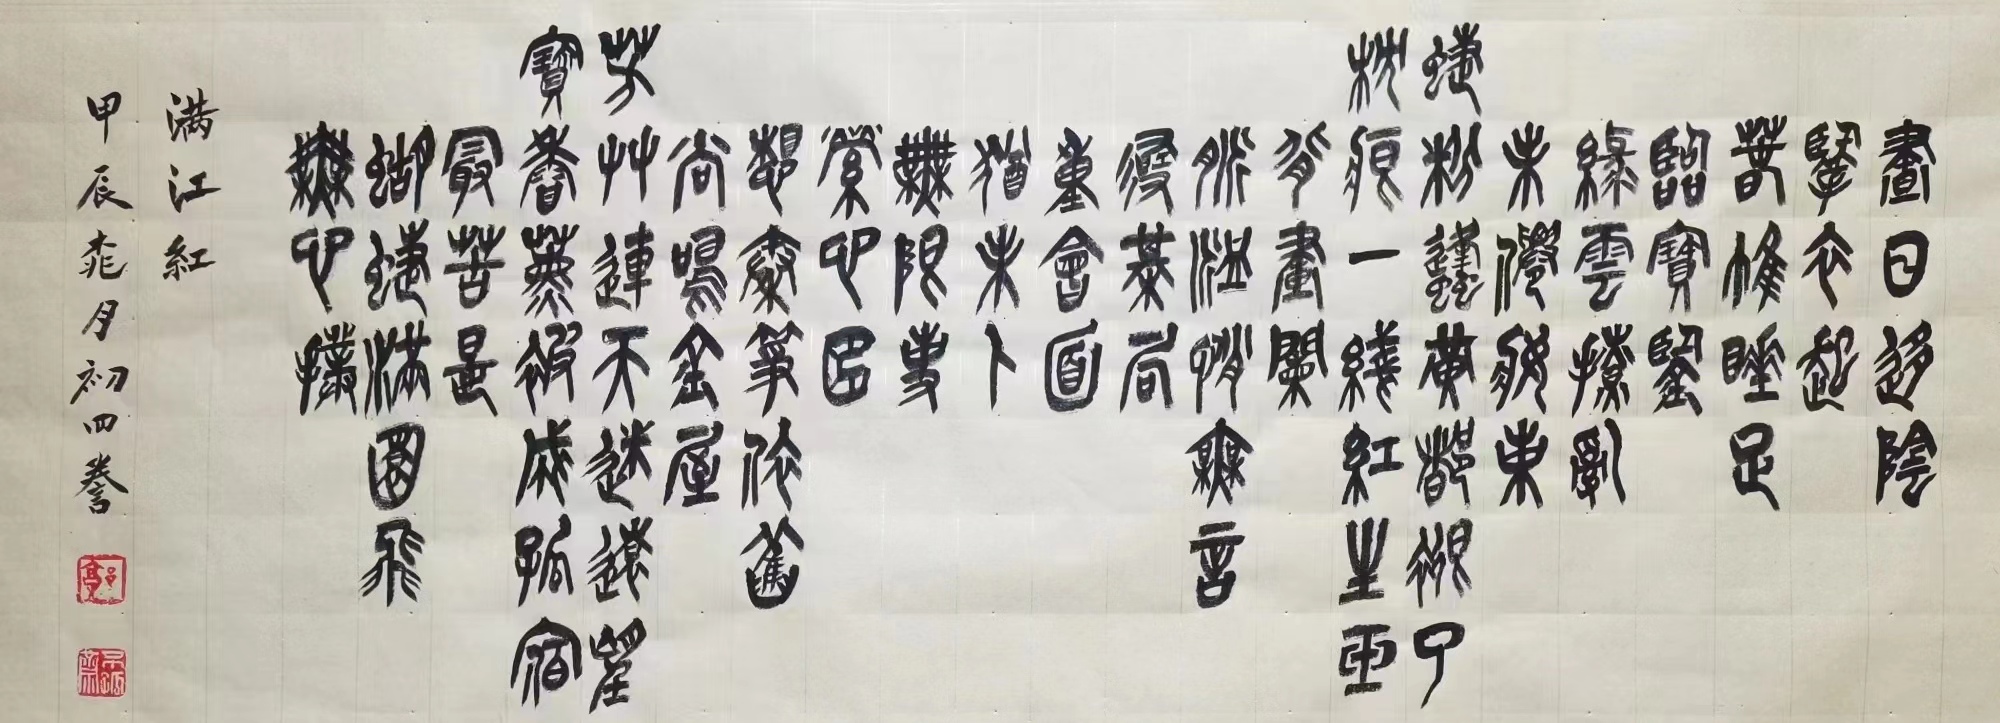 晝日迻陰
擥衣起
春帷睡足
臨寶鑒
綠雲撩亂
未束
蝶粉蜂黃都褪了
枕痕一綫紅生玉
背畫闌
脈脈悄無言
尋棊局
重會面
猶未卜
無限事
縈心曲
想秦箏依舊
尚鳴金屋
芳艸連天迷遠望
寶香薰被成孤宿
最苦是
蝴蝶滿園飛
無心撲
满江紅
甲辰桃月初四誊